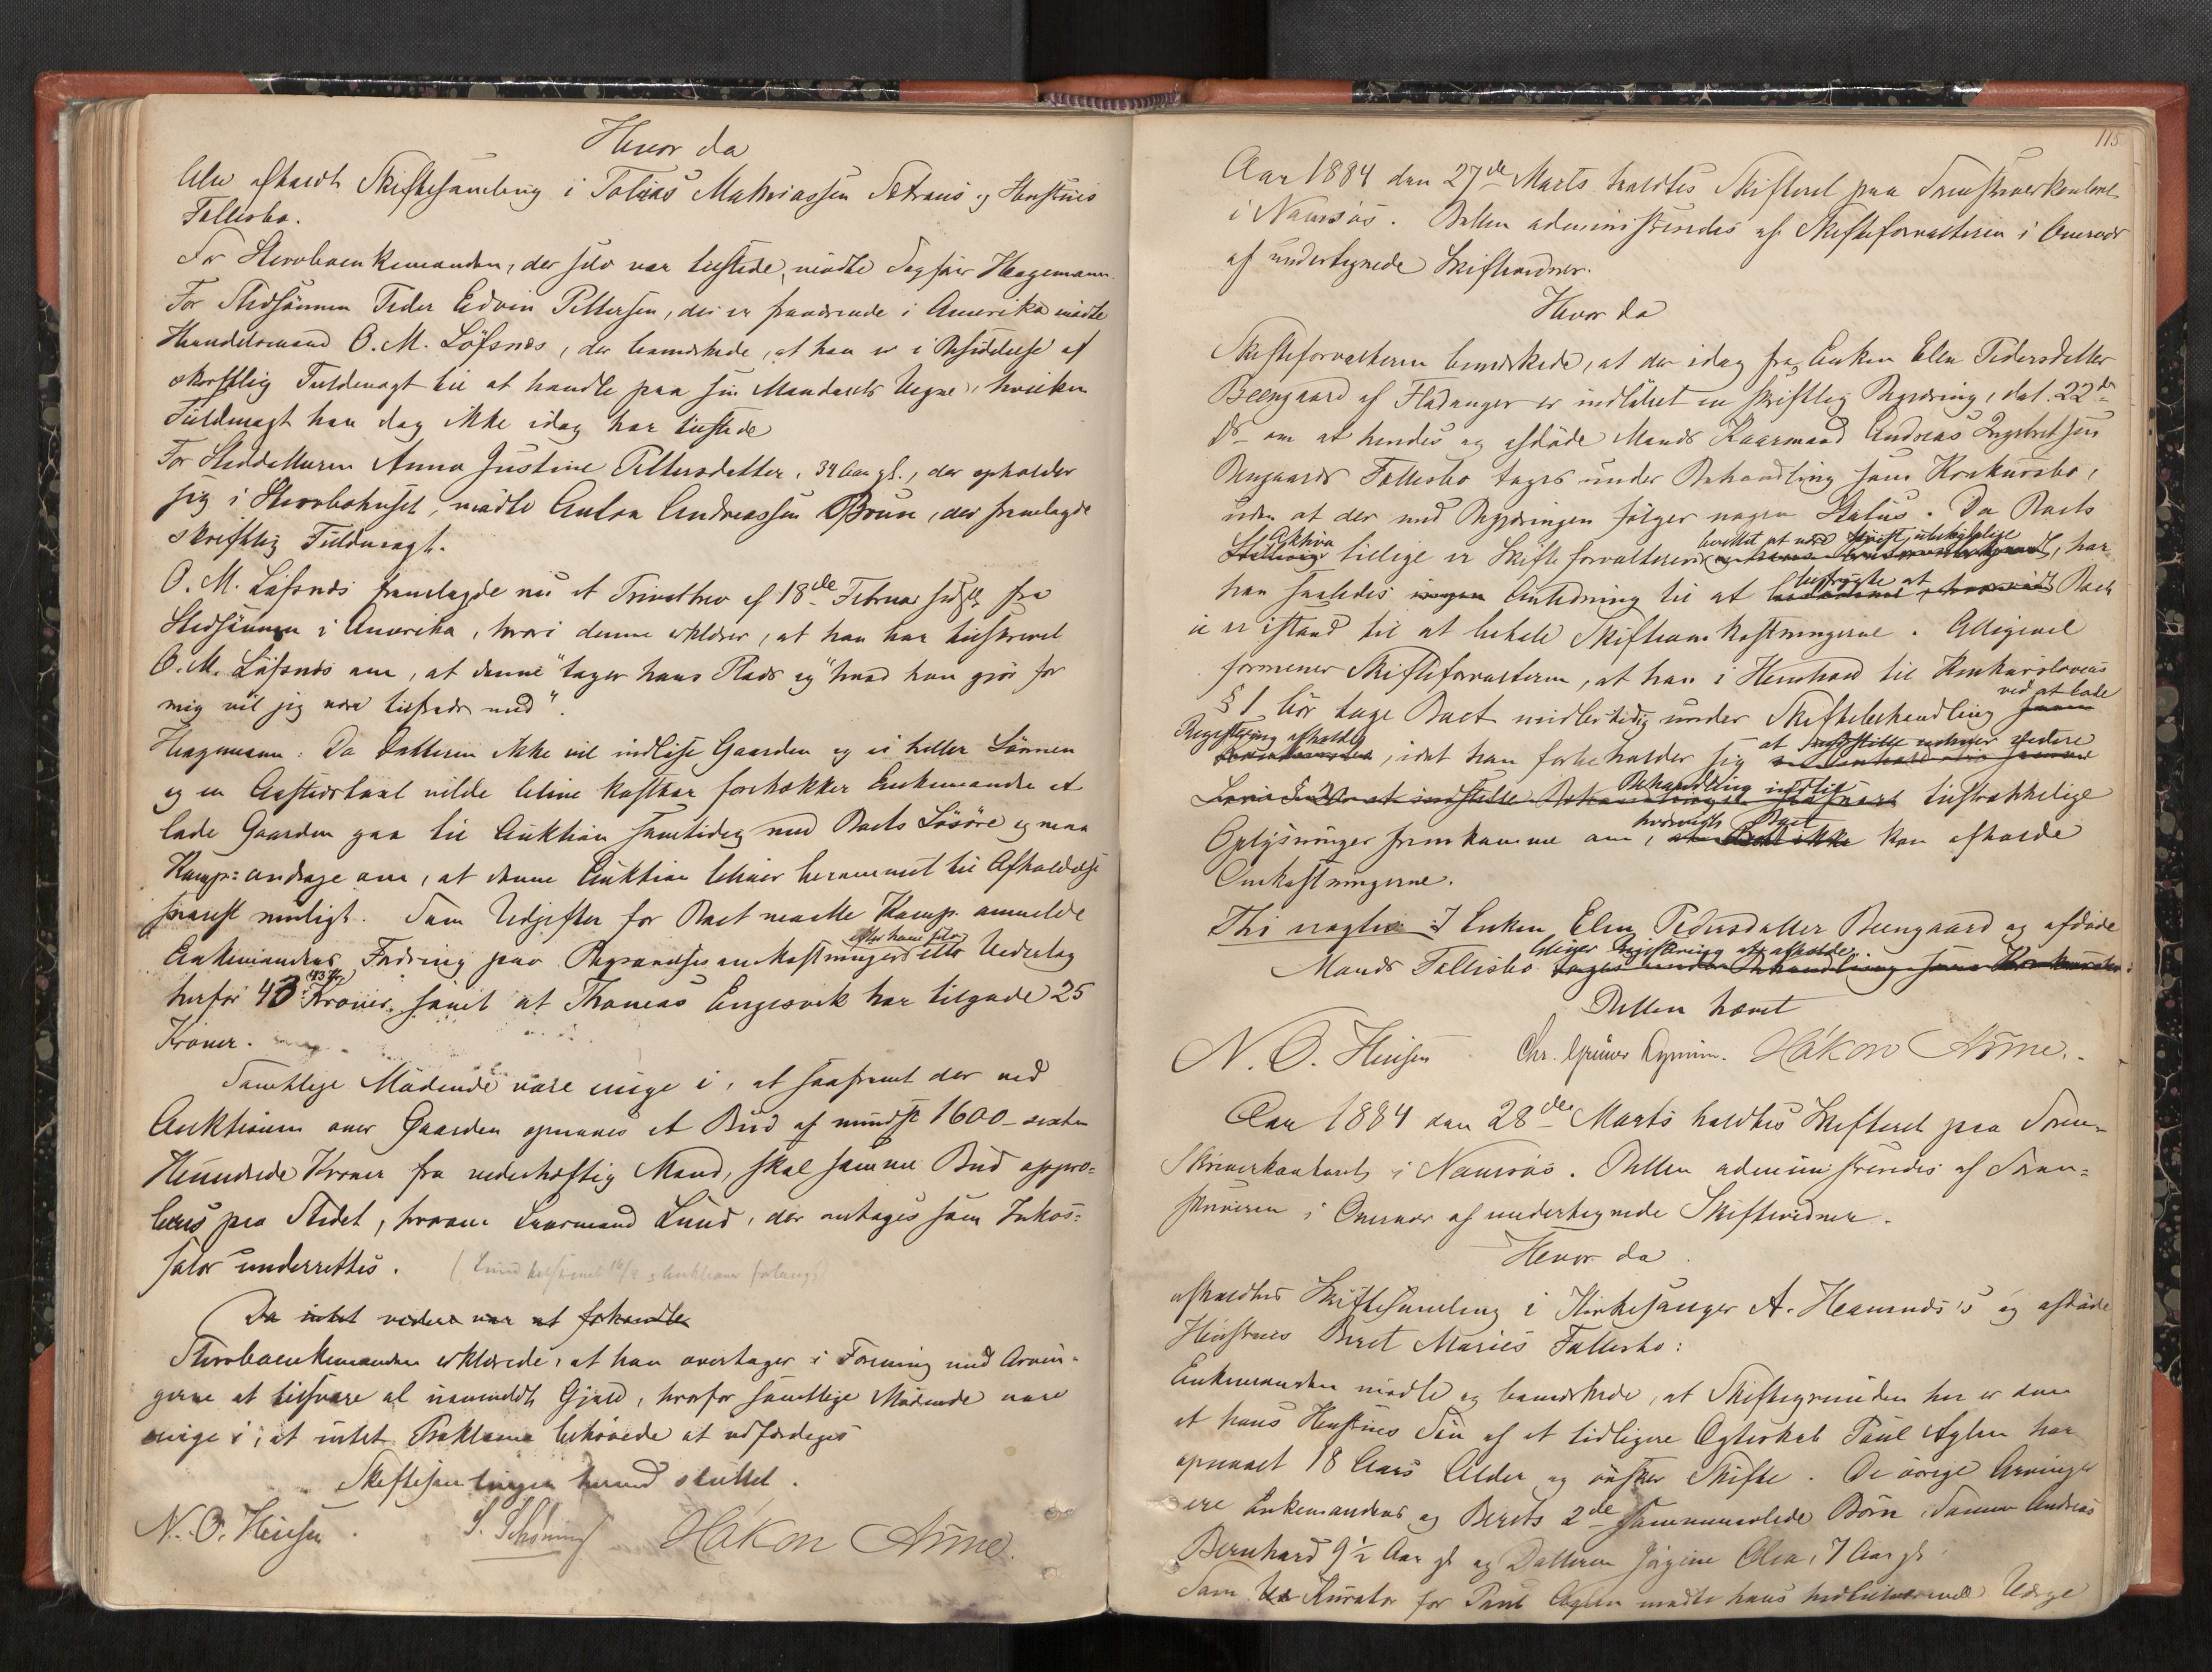 Hvor da
blev afholdt Skiftesamling i Tobias Mathiassen Setrans og Hustrues
Fællesbo.
For Stervboenkemanden, der selv var tilstede, mødte Sagfører Hagemann.
For Stedsønnen Peder Edvin Pettersen, der er fraværende i Amerika mødte
Handelsmand O. M. Löfsnæs, der bemærkede, at han er i Besiddelse af
skriftlig Fuldmagt til at handle paa sin Mandants Vegne, hvilken
Fuldmagt han dog ikke idag har tilstede
For Steddatteren Anna Justine Pettersdatter, 34 Aar gl., der opholder
sig i Stervbohuset, mødte Anton Andreassen Brun, der fremlagde
skriftlig Fuldmagt.
O. M. Löfsnæs fremlagde nu et Privatbrev af 18de Februar sidstl. fra
Stedsønnen i Amerika, hvori denne erklærer, at han har tilskrevet
O. M. Löfsnæs om, at denne "tager hans Plads og "hvad han gjør for
mig vil jeg være tilfreds med".
Hagemann: Da Datteren ikke vil indløse Gaarden og ei heller Sønnen
og en Aastedstaxt vilde blive kostbar foretrækker Enkemanden at
lade Gaarden gaa til Auktion samtidig med Boets Løsøre og maa
Komp: andrage om, at denne Auktion bliver berammet til Afholdelse
snarest muligt. Som Udgifter for Boet maatte Komp. anmelde
efter hans
Enkemandens Fordring paa Begravelsesomkostninger eller Vederlag
(43 Kr)
herfor 43 Kroner, samt at Thomas Engesvik har tilgode 25
Kroner.
Samtlige Mødende vare enige i, at saafremt der ved
Auktionen over Gaarden opnaaes et Bud af mindst 1600 - sexten
Hundrede Kroner fra vederhæftig Mand, skal samme Bud appro=
beres paa Stedet, hvorom Lensmand Lund, der antages som Inkas=
sator underrettes. (Lund tilskrevet
Da intet videre var at forhandle
Stervboenkemanden erklærede, at han overtager i Forening med Arvin-
gerne at tilsvare al uanmeldt Gjæld, hvorfor samtlige Mødende vare
enige i, at intet Proklama behøvede at udfærdiges
Skiftesamlingen hermed sluttet.
N. O. Hansen. S. Schøning Håkon Arne.
115
Aar 1884 den 27de Marts holdtes Skifteret paa Sorenskriverkontoret
i Namsos. Retten administreredes af Skifteforvalteren i Overvær
af undertegnede Skiftevidner.
Hvor da
Skifteforvalteren bemærkede, at der idag fra Enken Elen Pedersdatter
Beengaard af Fladanger er indløbet en skriftlig Begjæring, dat. 22de
ds om at hendes og afdøde Mands Kaarmand Andreas Ingebretsen
Bengaards Fællesbo tages under Behandling som Konkursbo,
uden at der med Begjæringen følger nogen Status. Da Boets
Aktiva bevidst at være høist ubetydelige
Stilling tillige er Skifteforvalteren, har
betvivle at
han saaledes ingen Anledning til at Boet
ei er istand til at betale Skifteomkostningerne. Alligevel
formener Skifteforvalteren, at han i Henhold til Konkurslovens
ved at lade
§ 1 bør tage Boet midlertidig under Skiftebehandling som
Registrering afholdes at indstille enhver videre
, idet han forbeholder sig
Behandling indtil
at indstille Behandlingen tilstrækkelige
hvorvidt Boet
Oplysninger fremkomme om, at Boet ikke kan afholde
Omkostningerne.
Thi vragtes: I Enken Elen Pedersdatter Beengaard og afdøde
bliver Registrering at afholde
Mands Fællesbo tages under Behandling som Konkursbo.
Retten hævet
N. O. Hansen Chr. Håkon Arne.
Aar 1884 den 28de Marts holdtes Skifteret paa Soren=
skriverkontoret i Namsos. Retten administreredes af Soren=
skriveren i Overvær af undertegnede Skiftevidner.
Hvor da
afholdtes Skiftesamling i Kirkesanger A. Hermnds's og afdøde
Hustrues Beret Maries Fællesbo:
Enkemanden mødte og bemærkede, at Skiftegrunden her er den
at hans Hustrues Søn af et tidligere Ægteskab Paul Aglen har
opnaaet 18 Aars Alder og ønsker Skifte. De øvrige Arvinger
ere Enkemandens og Berets 2de sammenavlede Børn: Sønnen Andreas
Bernhard 9½ Aar gl og Datteren Jørgine Olea, 7 Aar gl.
Som Kurator for Paul Aglen mødte hans hidtilværende Værge